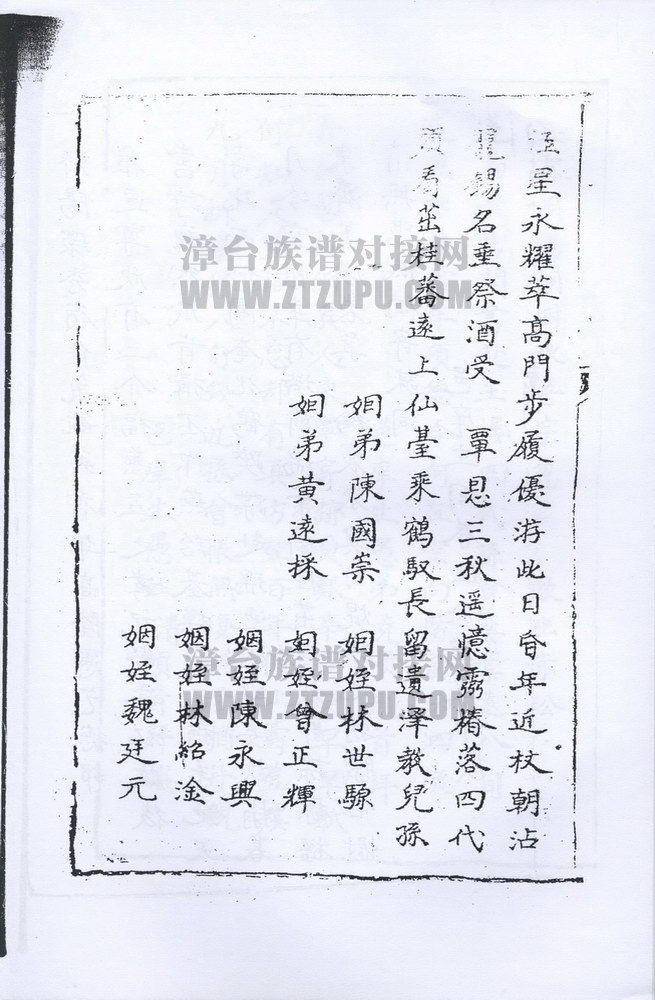 星永耀萃高門步履優游此日昏年近杖朝沾
寵錫名垂祭酒受 覃恩三秋遥憶靈椿落四代
看茁桂蕃遠上仙臺乘鶴馭長留遺澤教兒孫
姻弟陳國崇
姻弟黃遠採
姻姪林世騵
姻姪曾正輝
姻姪陳永興
姻姪林紹淦
姻姪魏廷元
漳台族谱对接网
WWW.ZTZUPU.COM
漳台族谱对接网
WWW.ZTZUPU.COM